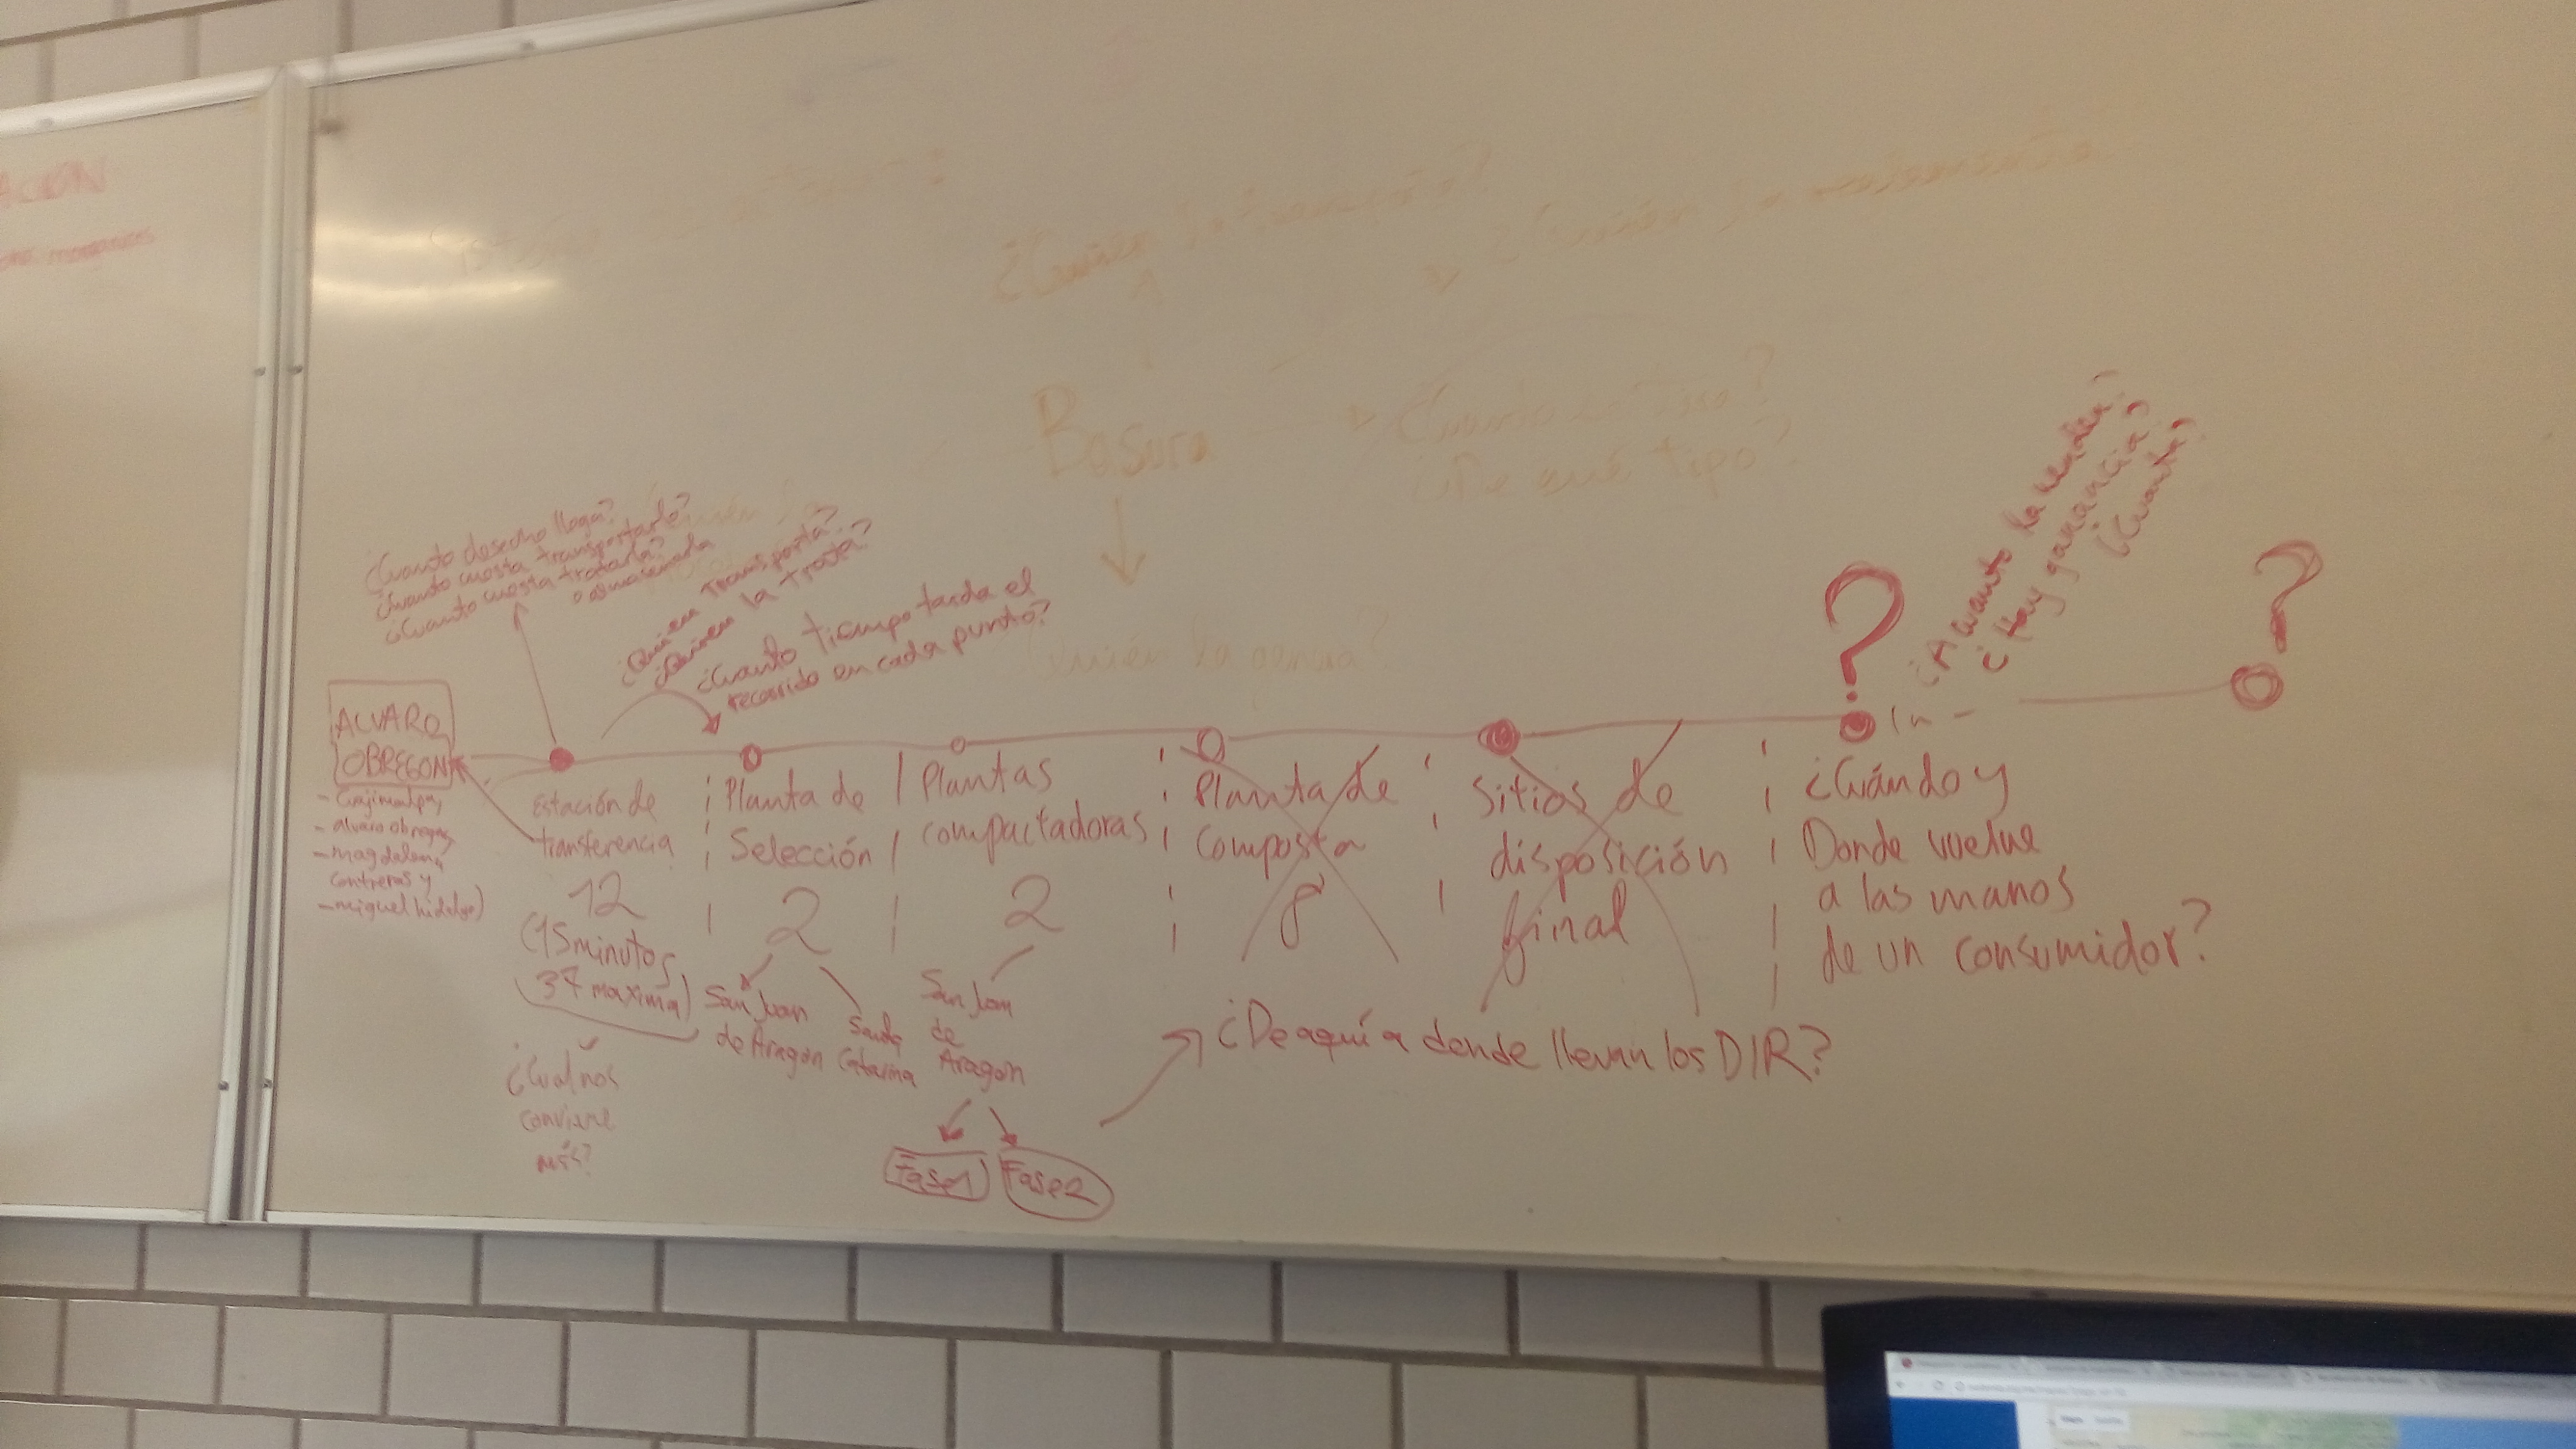 ACIÓN
Basura
¿De qué tipo?
¿Cuanto desecho llega?
¿Cuanto cuesta transportarlo?
¿Cuanto cuesta tratarla?
o almacenarla
¿Quién transporta?
¿Quién la trata?
¿Cuanto tiempo tarda el
recorrido en cada punto?
quién la genera?
¿A cuanto la venden?
¿Hay ganancia?
¿Cuanta?
?
?
ALVARO
OBREGON
- Cuajimalpa,
- alvaro obregon,
- magdalena
contreras y
- miguel hidalgo)
Estación de
transferencia
12
(15 minutos
37 maxima)
¿Cual nos
conviene
más?
Planta de
Selección
2
San Juan
de Aragon
Santa
Catarina
Plantas
compactadoras
2
San Juan
de
Aragon
Fase 1
Fase 2
Planta de
Composta
8
Sitios de
disposición
final
¿De aquí a donde llevan los DIR?
¿Cuándo y
Donde vuelve
a las manos
de un consumidor?